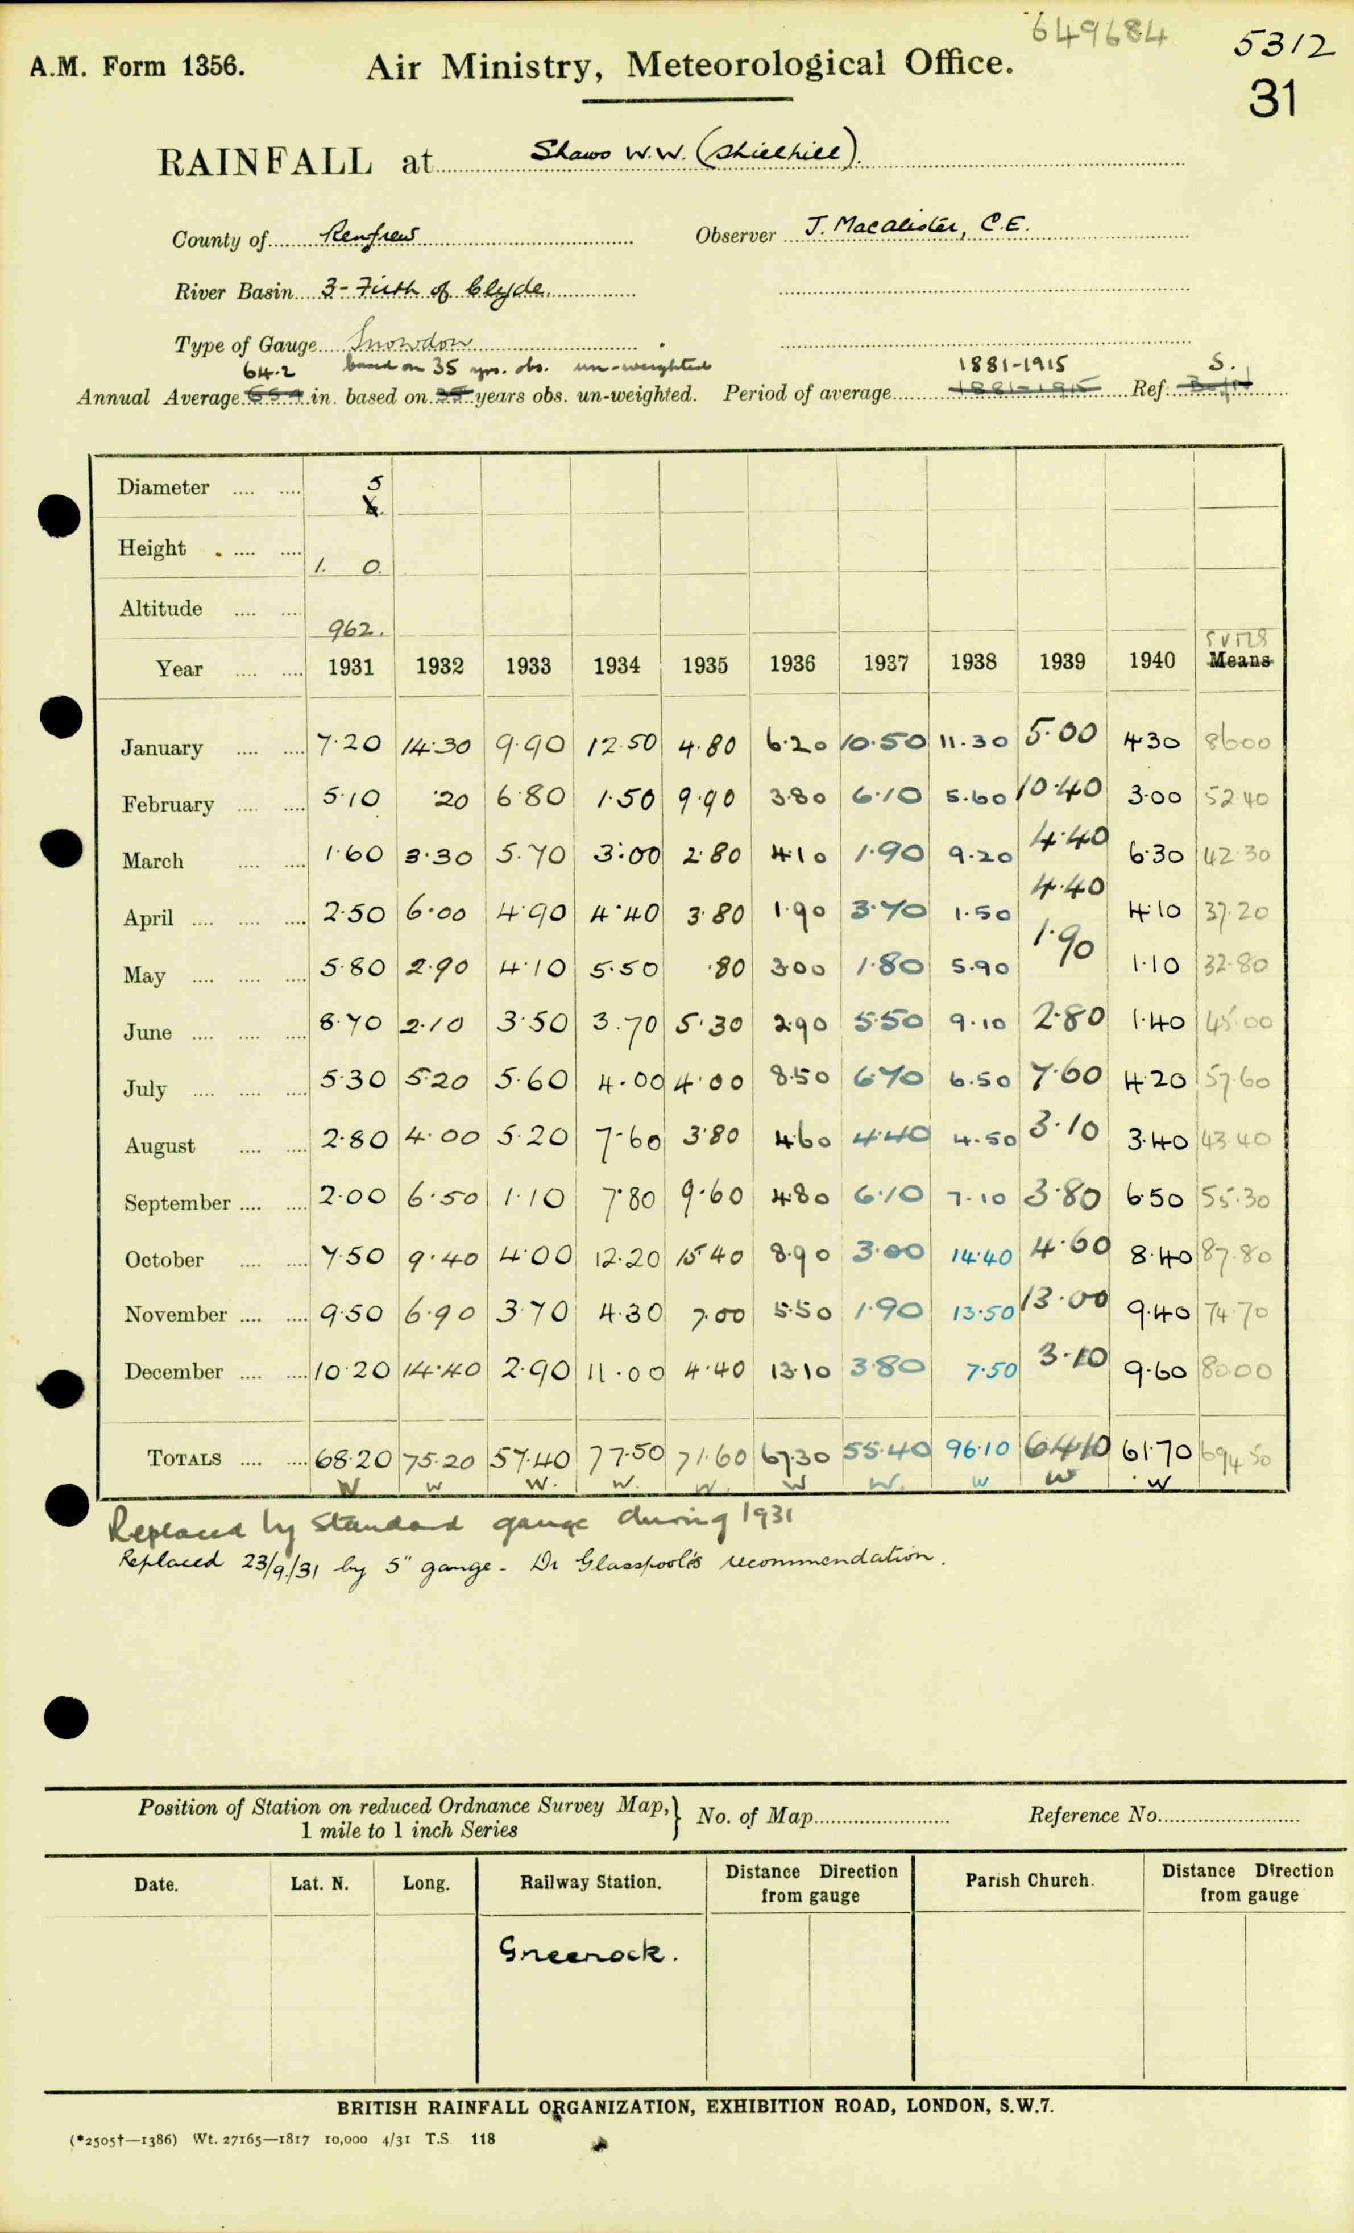 649684
5312
A.M. Form 1356. Air Ministry, Meteorological Office.
31
RAINFALL at Shaws W.W. (Shielhill).
County of Renfrew Observer J. Macalister, C.E.
River Basin 3 - Firth of Clyde.
Type of Gauge Snowdon
64.2 based on 35 yrs. obs. un-weighted 1881-1915 S.
Annual Average in. based on 35 years obs. un-weighted. Period of average 1881-1915 Ref.
Diameter .... .... 5
6.
Height .... .... 1. 0.
Altitude .... .... 962.
Sums
Year .... .... 1931 1932 1933 1934 1935 1936 1937 1938 1939 1940 Means
January .... .... 7.20 14.30 9.90 12.50 4.80 6.20 10.50 11.30 5.00 4.30 86.00
February .... .... 5.10 .20 6.80 1.50 9.90 3.80 6.10 5.60 10.40 3.00 52.40
March .... .... 1.60 3.30 5.70 3.00 2.80 4.10 1.90 9.20 4.40 6.30 42.30
April .... .... .... 2.50 6.00 4.90 4.40 3.80 1.90 3.70 1.50 4.40 4.10 37.20
May .... .... .... 5.80 2.90 4.10 5.50 .80 3.00 1.80 5.90 1.90 1.10 32.80
June .... .... .... 8.70 2.10 3.50 3.70 5.30 2.90 5.50 9.10 2.80 1.40 45.00
July .... .... .... 5.30 5.20 5.60 4.00 4.00 8.50 6.70 6.50 7.60 4.20 57.60
August .... .... 2.80 4.00 5.20 7.60 3.80 4.60 4.40 4.50 3.10 3.40 43.40
September .... .... 2.00 6.50 1.10 7.80 9.60 4.80 6.10 7.10 3.80 6.50 55.30
October .... .... 7.50 9.40 4.00 12.20 15.40 8.90 3.00 14.40 4.60 8.40 87.80
November .... .... 9.50 6.90 3.70 4.30 7.00 5.50 1.90 13.50 13.00 9.40 74.70
December .... .... 10.20 14.40 2.90 11.00 4.40 13.10 3.80 7.50 3.10 9.60 80.00
TOTALS .... .... 68.20 75.20 57.40 77.50 71.60 67.30 55.40 96.10 64.10 61.70 694.50
W w W. W. W. W W. w W W
Replaced by standard gauge during 1931
Replaced 23/9/31 by 5" gauge - Dr Glasspoole's recommendation.
Position of Station on reduced Ordnance Survey Map, } No. of Map Reference No.
1 mile to 1 inch Series
Date. Lat. N. Long. Railway Station. Distance Direction from gauge Parish Church. Distance Direction from gauge
Greenock.
BRITISH RAINFALL ORGANIZATION, EXHIBITION ROAD, LONDON, S.W.7.
(*2505†—1386) Wt. 27165—1817 10,000 4/31 T.S. 118